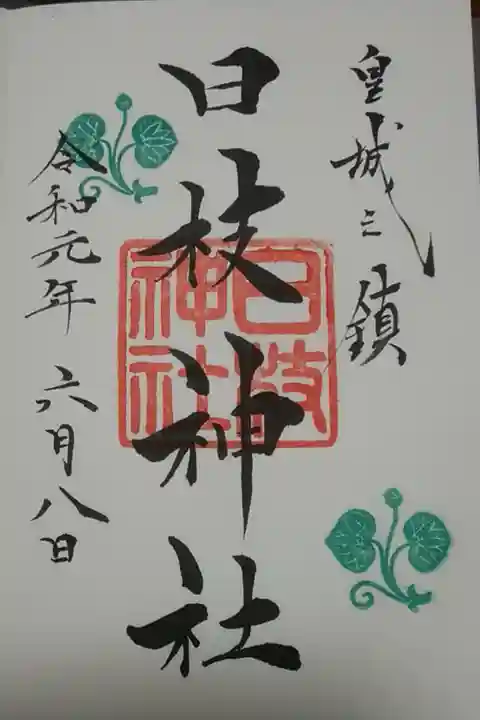 皇城之鎮
日枝神社
日枝
神社
令和元年 六月八日